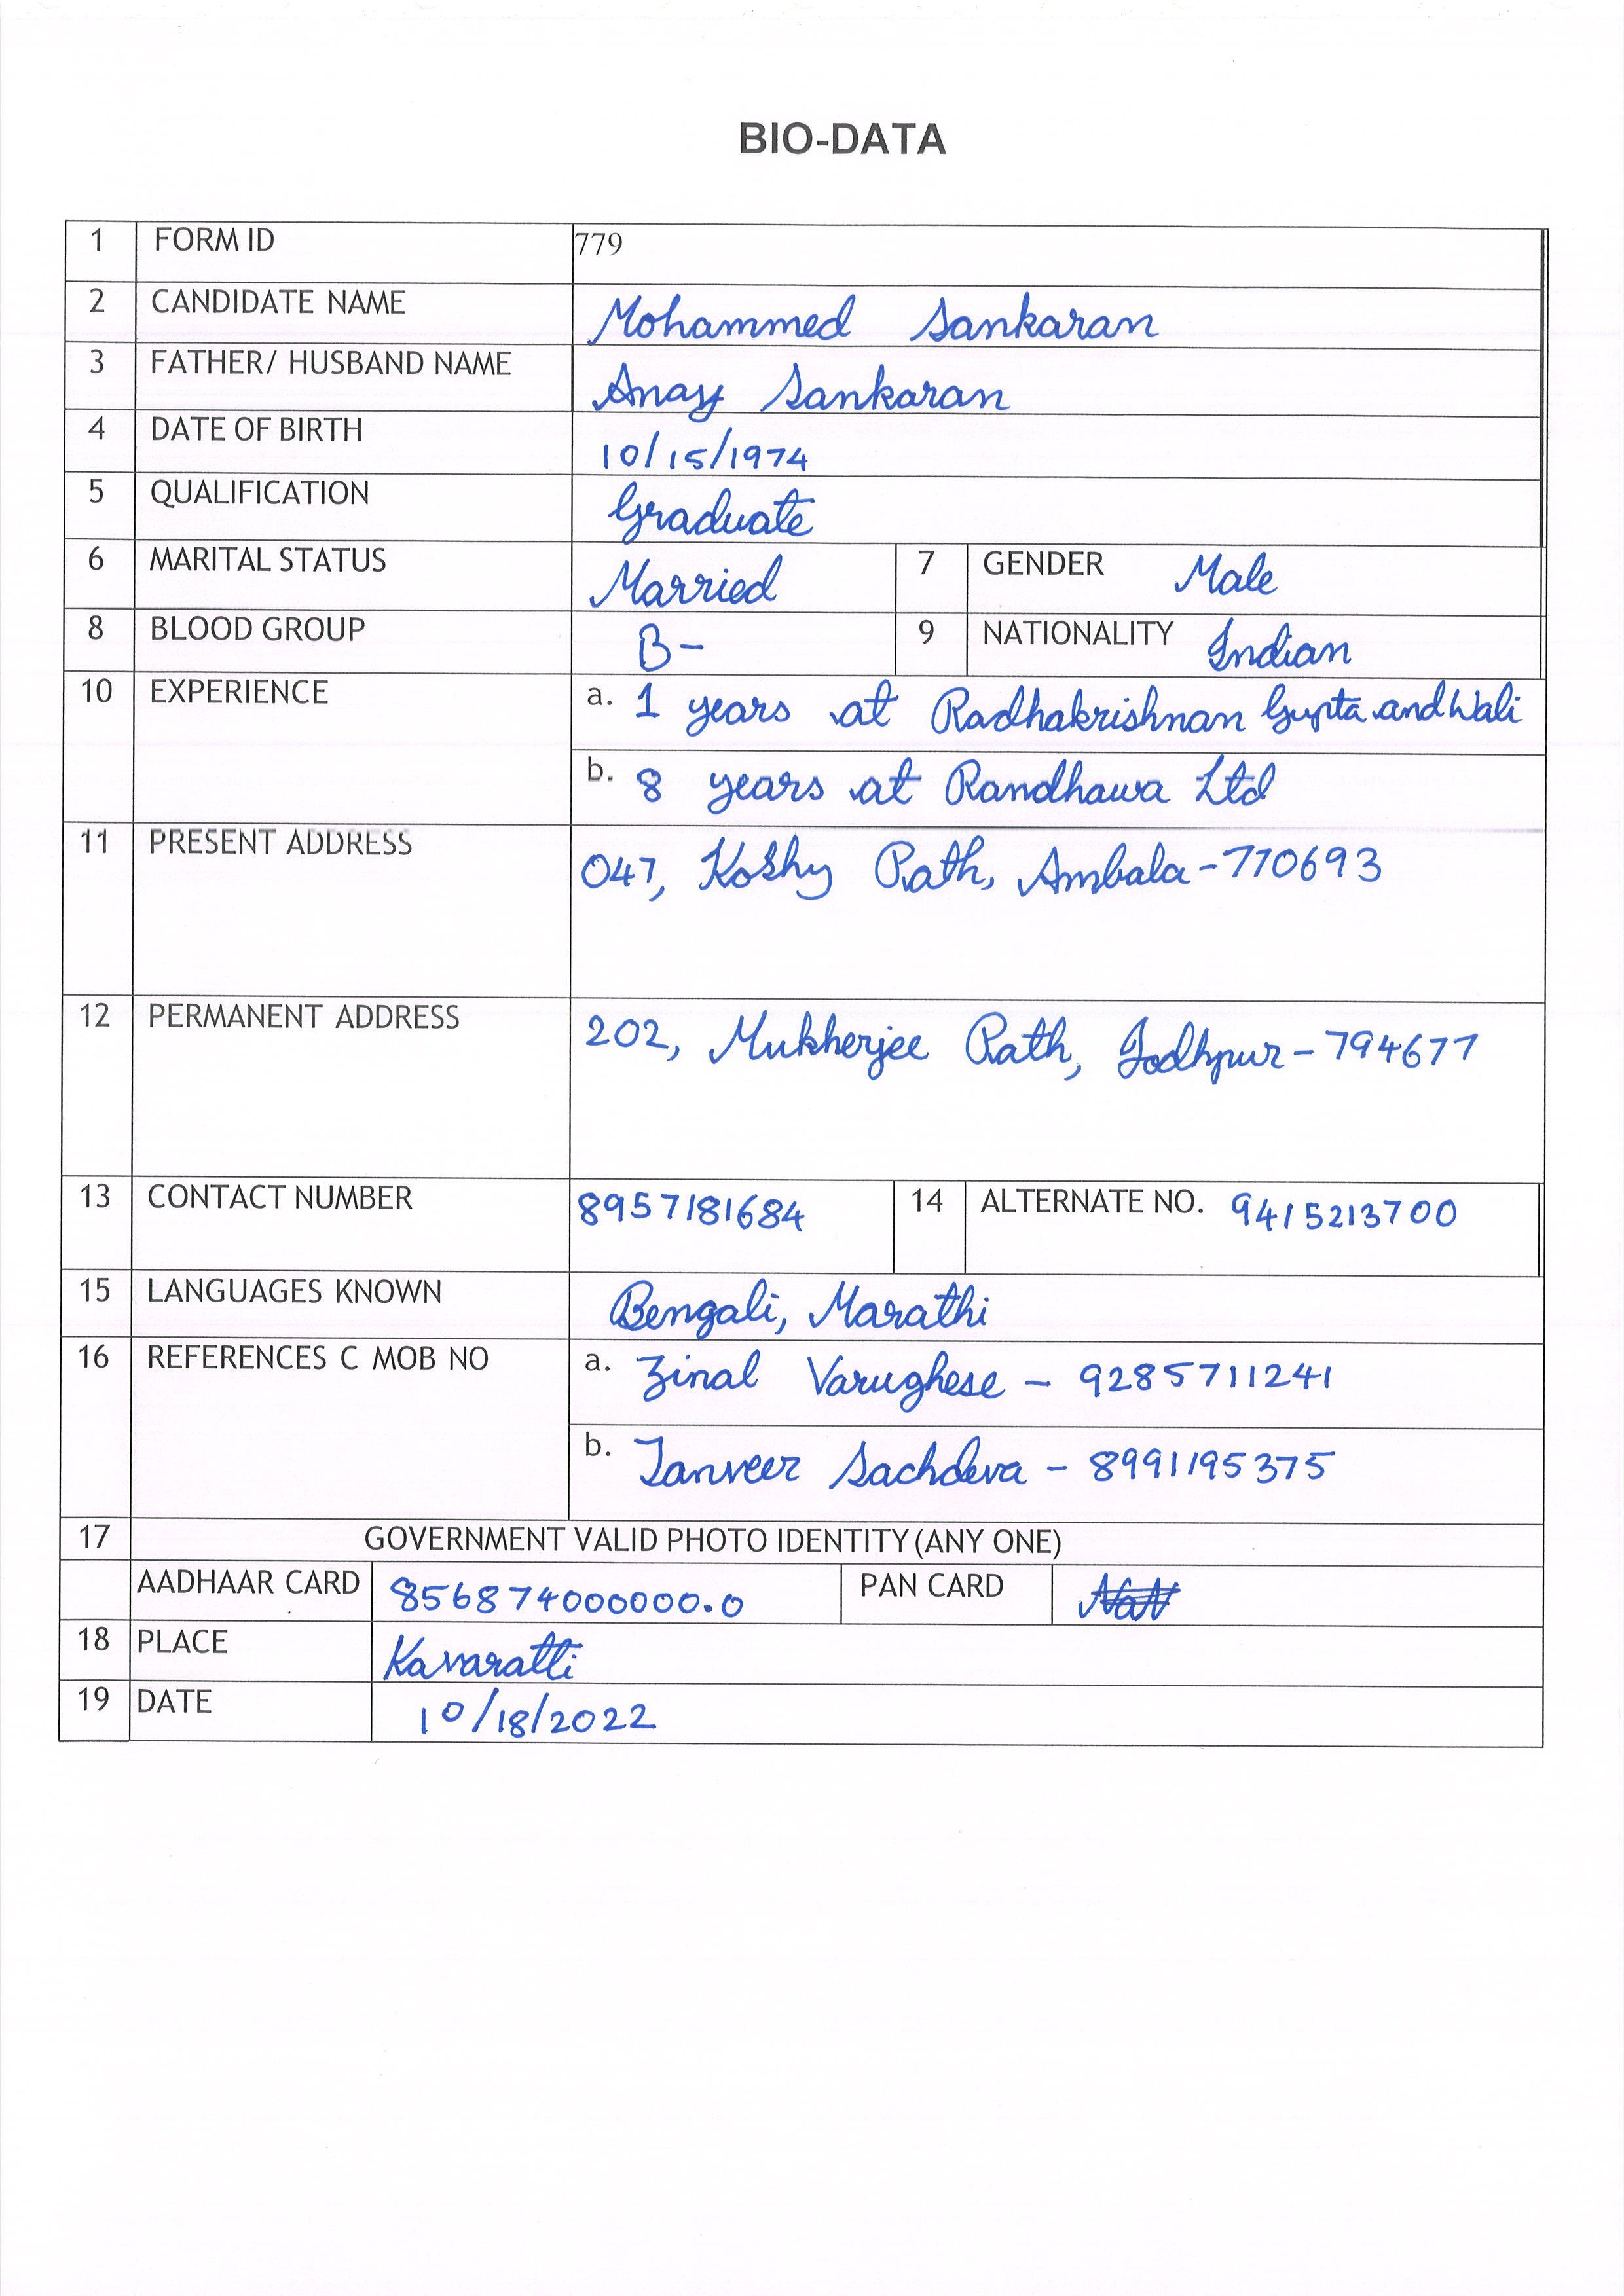 BIO-DATA
1 FORM ID 779
2 CANDIDATE NAME Mohammed Sankaran
3 FATHER/ HUSBAND NAME Anay Sankaran
4 DATE OF BIRTH 10/15/1974
5 QUALIFICATION Graduate
6 MARITAL STATUS Married 7 GENDER Male
8 BLOOD GROUP B- 9 NATIONALITY Indian
10 EXPERIENCE a. 1 years at Radhakrishnan Gupta and Wali
b. 8 years at Randhawa Ltd
11 PRESENT ADDRESS 047, Koshy Path, Ambala-770693
12 PERMANENT ADDRESS 202, Mukherjee Path, Jodhpur-794677
13 CONTACT NUMBER 8957181684 14 ALTERNATE NO. 9415213700
15 LANGUAGES KNOWN Bengali, Marathi
16 REFERENCES C MOB NO a. Zinal Varughese - 9285711241
b. Tanveer Sachdeva - 8991195375
17 GOVERNMENT VALID PHOTO IDENTITY (ANY ONE)
AADHAAR CARD 856874000000.0 PAN CARD NaN
18 PLACE Kavaratti
19 DATE 10/18/2022